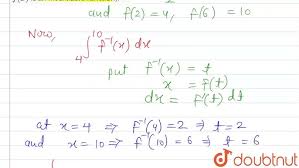 and f(2) = 4, f(6) = 10
Now,
∫₄¹⁰ f⁻¹(x) dx
put f⁻¹(x) = t
x = f(t)
dx = f'(t) dt
at x = 4 ⇒ f⁻¹(4) = 2 ⇒ t = 2
and x = 10 ⇒ f⁻¹(10) = 6 ⇒ t = 6
doubtnut